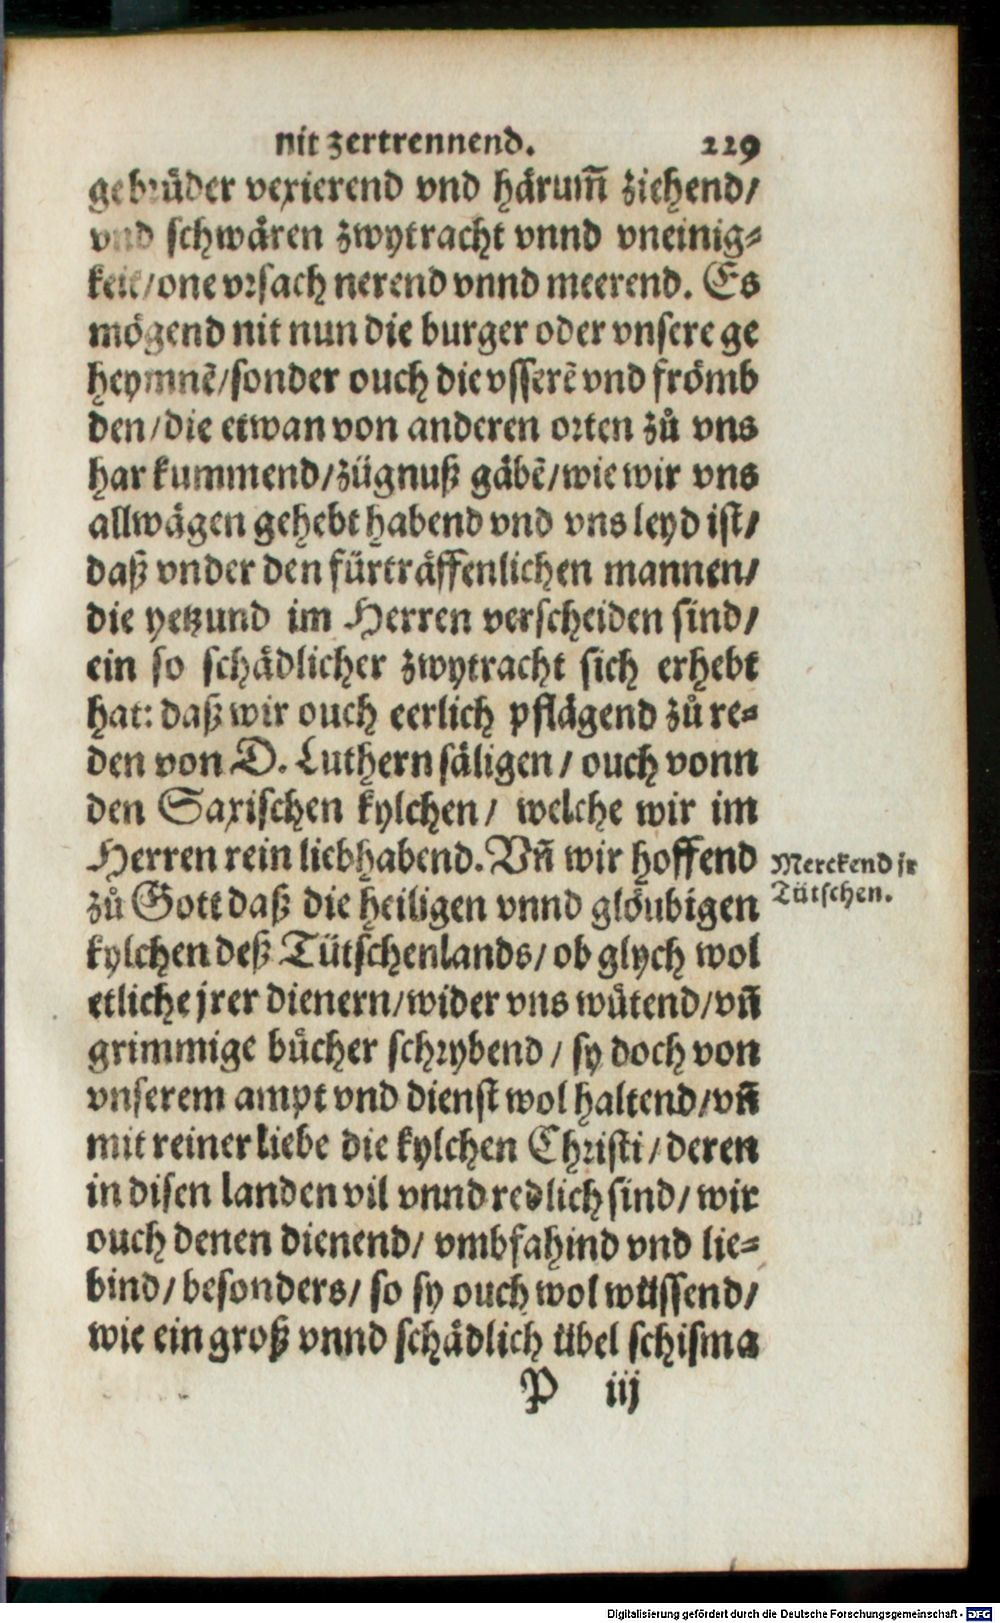 nit zertrennend. 229
gebrüder vexierend vnd härum̄ ziehend/
vnd schwären zwytracht vnnd vneinig⸗
keit/one vrsach nerend vnnd meerend. Es
mögend nit nun die burger oder vnsere ge
heymnē/sonder ouch die vsserē vnd frömb
den/die etwan von anderen orten zů vns
har kummend/zügnuß gäbē/wie wir vns
allwägen gehebt habend vnd vns leyd ist/
daß vnder den fürträffenlichen mannen/
die yetzund im Herren verscheiden sind/
ein so schädlicher zwytracht sich erhebt
hat: daß wir ouch eerlich pflägend zů re⸗
den von D. Luthern säligen/ ouch vonn
den Saxischen kylchen/ welche wir im
Herren rein liebhabend. Vn̄ wir hoffend
Merckend jr
Tütschen.
zů Gott daß die heiligen vnnd glöubigen
kylchen deß Tütschenlands/ ob glych wol
etliche jrer dienern/wider vns wütend/vn̄
grimmige bücher schrybend/ sy doch von
vnserem ampt vnd dienst wol haltend/vn̄
mit reiner liebe die kylchen Christi/ deren
in disen landen vil vnnd redlich sind/ wir
ouch denen dienend/ vmbfahind vnd lie⸗
bind/ besonders/ so sy ouch wol wüssend/
wie ein groß vnnd schädlich übel schisma
P iij
Digitalisierung gefördert durch die Deutsche Forschungsgemeinschaft - DFG